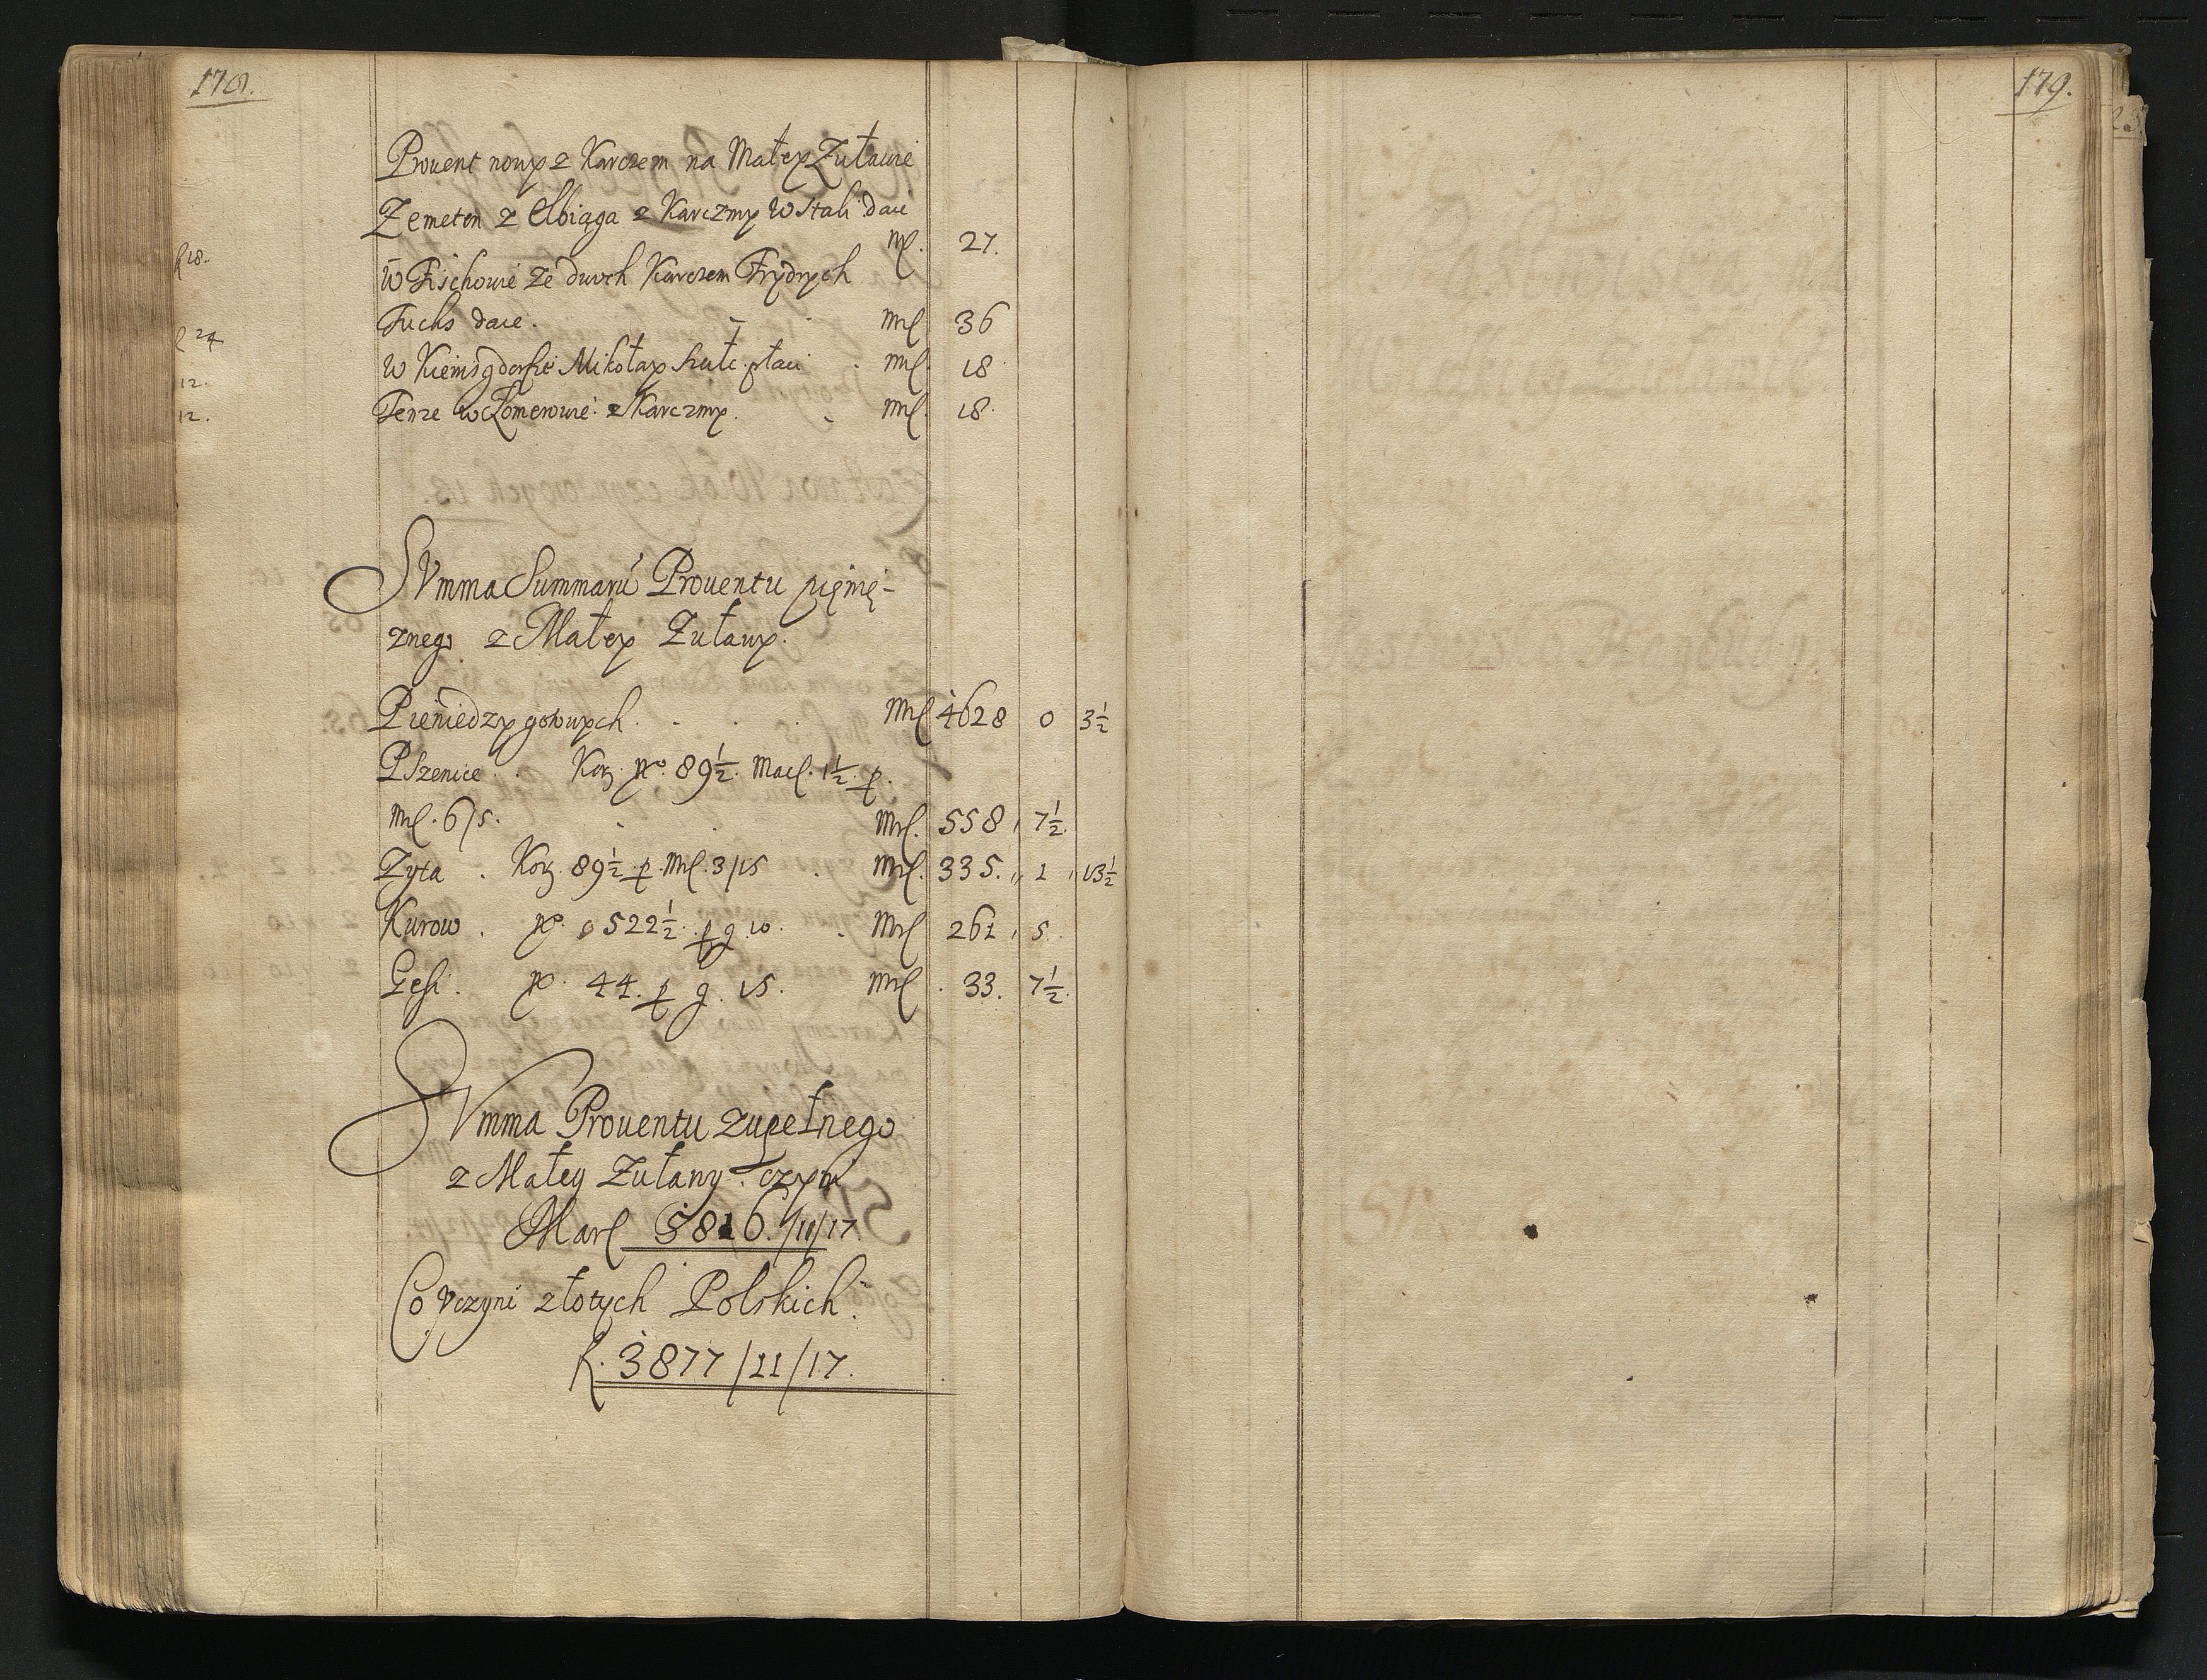 178.
Prouent nowy z Karczem na Małey Zuławie
Zemeten z Elbiąga z Karczmy w Stali daie
Mr. 27.
f 18.
w Fischowie ze dwoch Karczem Frydrych
Fuchs daie. Mr 36
f 24
w Kienisgdorfie Mikołay płaci Mr 18
12.
Tenze w Zomerowie z Karczmy. Mr 18.
12.
SVmma Summarū Prouentu pięnię-
znego z Małey Zuławy.
Pieniedzy gotowych. Mr 4628 0 3½
Pszenice. Korz. No. 89½. Mac. 1½. p.
Mr. 6/5. Mr. 558, 7½.
Zyta. Korz. 89½ p. Mr. 3/15 Mr. 335. 1 13½
Kurow. No. 522½. p g 10. Mr 261, 5.
Gęsi. No. 44. p g. 15. Mr. 33. 7½.
SVmma Prouentu zupełnego
z Małey Zuławy. czyni
Mar 5816. /11/17.
Co vczyni złotych Polskich.
f. 3877/11/17.
179.